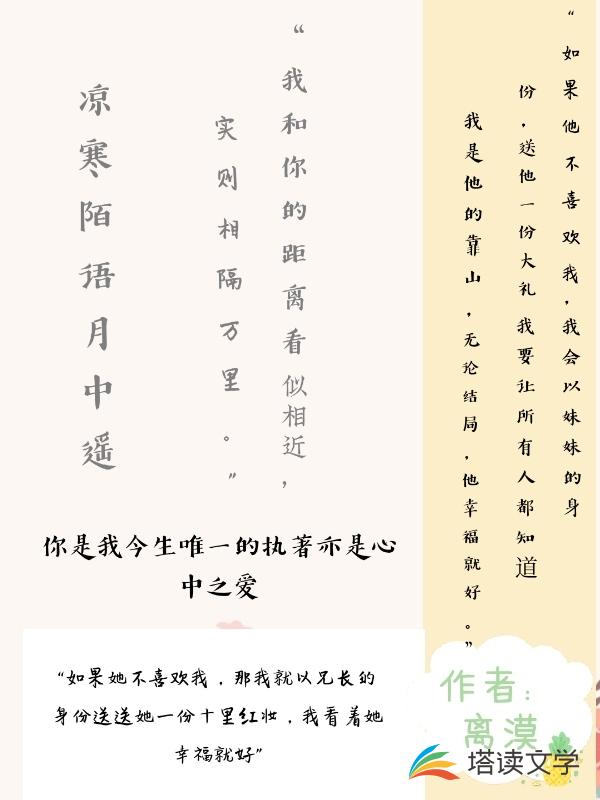 “如果他不喜欢我，我会以妹妹的身
份，送他一份大礼我要让所有人都知道
我是他的靠山，无论结局，他幸福就好。”
“我和你的距离看似相近，
实则相隔万里。”
凉寒陌语月中遥
你是我今生唯一的执著亦是心
中之爱
“如果她不喜欢我，那我就以兄长的
身份送送她一份十里红妆，我看着她
幸福就好”
作者：
离漠
塔读文学